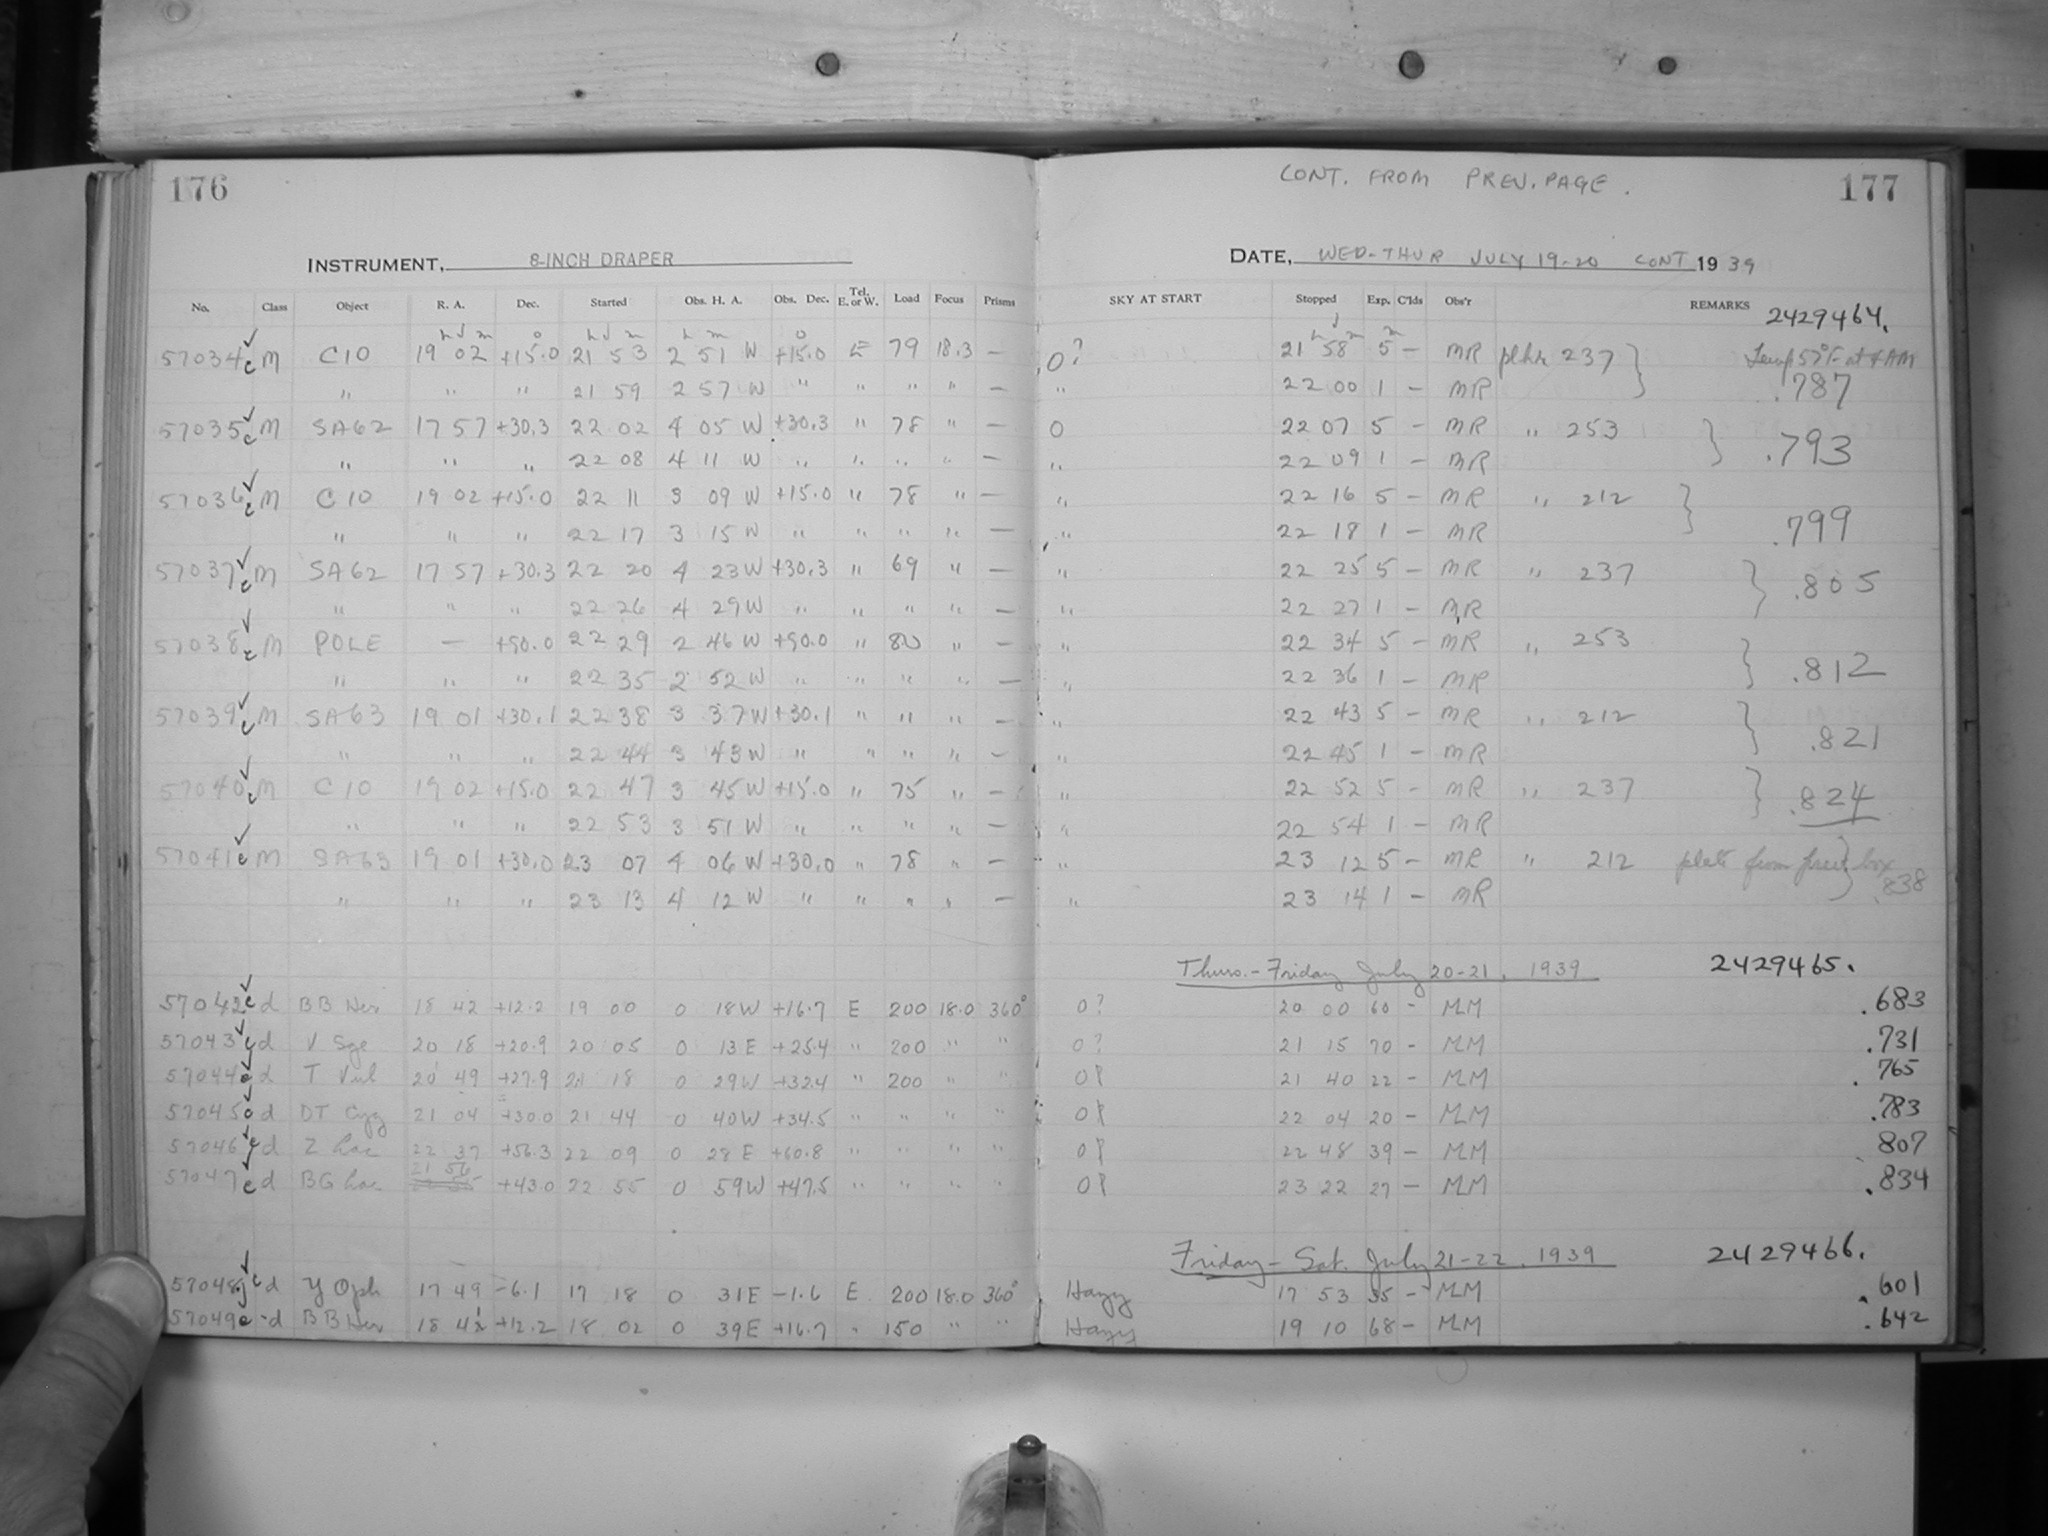 176
INSTRUMENT, 8-INCH DRAPER
No. Class Object R. A. Dec. Started Obs. H. A. Obs. Dec. Tel. E. or W. Load Focus Prisms
h m o h m h m o
57034 c M C10 19 02 +15.0 21 53 2 51 W +15.0 E 79 18.3 —
" " " 21 59 2 57 W " " " " —
57035 c M SA62 17 57 +30.3 22 02 4 05 W +30.3 " 78 " —
" " " 22 08 4 11 W " " " " —
57036 c M C10 19 02 +15.0 22 11 3 09 W +15.0 " 78 " —
" " " 22 17 3 15 W " " " " —
57037 c M SA62 17 57 +30.3 22 20 4 23 W +30.3 " 69 " —
" " " 22 26 4 29 W " " " " —
57038 c M POLE — +90.0 22 29 2 46 W +90.0 " 80 " —
" " " 22 35 2 52 W " " " " —
57039 c M SA63 19 01 +30.1 22 38 3 37 W +30.1 " " " —
" " " 22 44 3 43 W " " " " —
57040 c M C10 19 02 +15.0 22 47 3 45 W +15.0 " 75 " —
" " " 22 53 3 51 W " " " " —
57041 c M SA63 19 01 +30.0 23 07 4 06 W +30.0 " 78 " —
" " " 23 13 4 12 W " " " " —
57042 c d BB Her 18 42 +12.2 19 00 0 18 W +16.7 E 200 18.0 360°
57043 c d V Sge 20 18 +20.9 20 05 0 13 E +25.4 " 200 " "
57044 c d T Vul 20 49 +27.9 21 18 0 29 W +32.4 " 200 " "
57045 c d DT Cyg 21 04 +30.0 21 44 0 40 W +34.5 " " " "
57046 c d Z Lac 22 37 +56.3 22 09 0 28 E +60.8 " " " "
57047 c d BG Lac 21 56 +43.0 22 55 0 59 W +47.5 " " " "
57048 c d Y Oph 17 49 -6.1 17 18 0 31 E -1.6 E 200 18.0 360°
57049 c d BB Her 18 42 +12.2 18 02 0 39 E +16.7 " 150 " "
CONT. FROM PREV. PAGE. 177
DATE, WED-THUR JULY 19-20 CONT 1939
SKY AT START Stopped Exp. C'lds Obs'r REMARKS 2429464.
h m m
0? 21 58 5 — MR plhr 237 Temp 57°F at 4 AM
" 22 00 1 — MR .787
0 22 07 5 — MR " 253
" 22 09 1 — MR .793
" 22 16 5 — MR " 212
" 22 18 1 — MR .799
" 22 25 5 — MR " 237 .805
" 22 27 1 — MR
" 22 34 5 — MR " 253
" 22 36 1 — MR .812
" 22 43 5 — MR " 212
" 22 45 1 — MR .821
" 22 52 5 — MR " 237 .824
" 22 54 1 — MR
" 23 12 5 — MR " 212 plate from box
" 23 14 1 — MR .838
Thurs.-Friday July 20-21, 1939 2429465.
0? 20 00 60 - MM .683
0? 21 15 70 - MM .731
0? 21 40 22 - MM .765
0? 22 04 20 - MM .783
0? 22 48 39 - MM .807
0? 23 22 27 - MM .834
Friday-Sat. July 21-22, 1939 2429466.
Hazy 17 53 35 - MM .601
Hazy 19 10 68 - MM .642